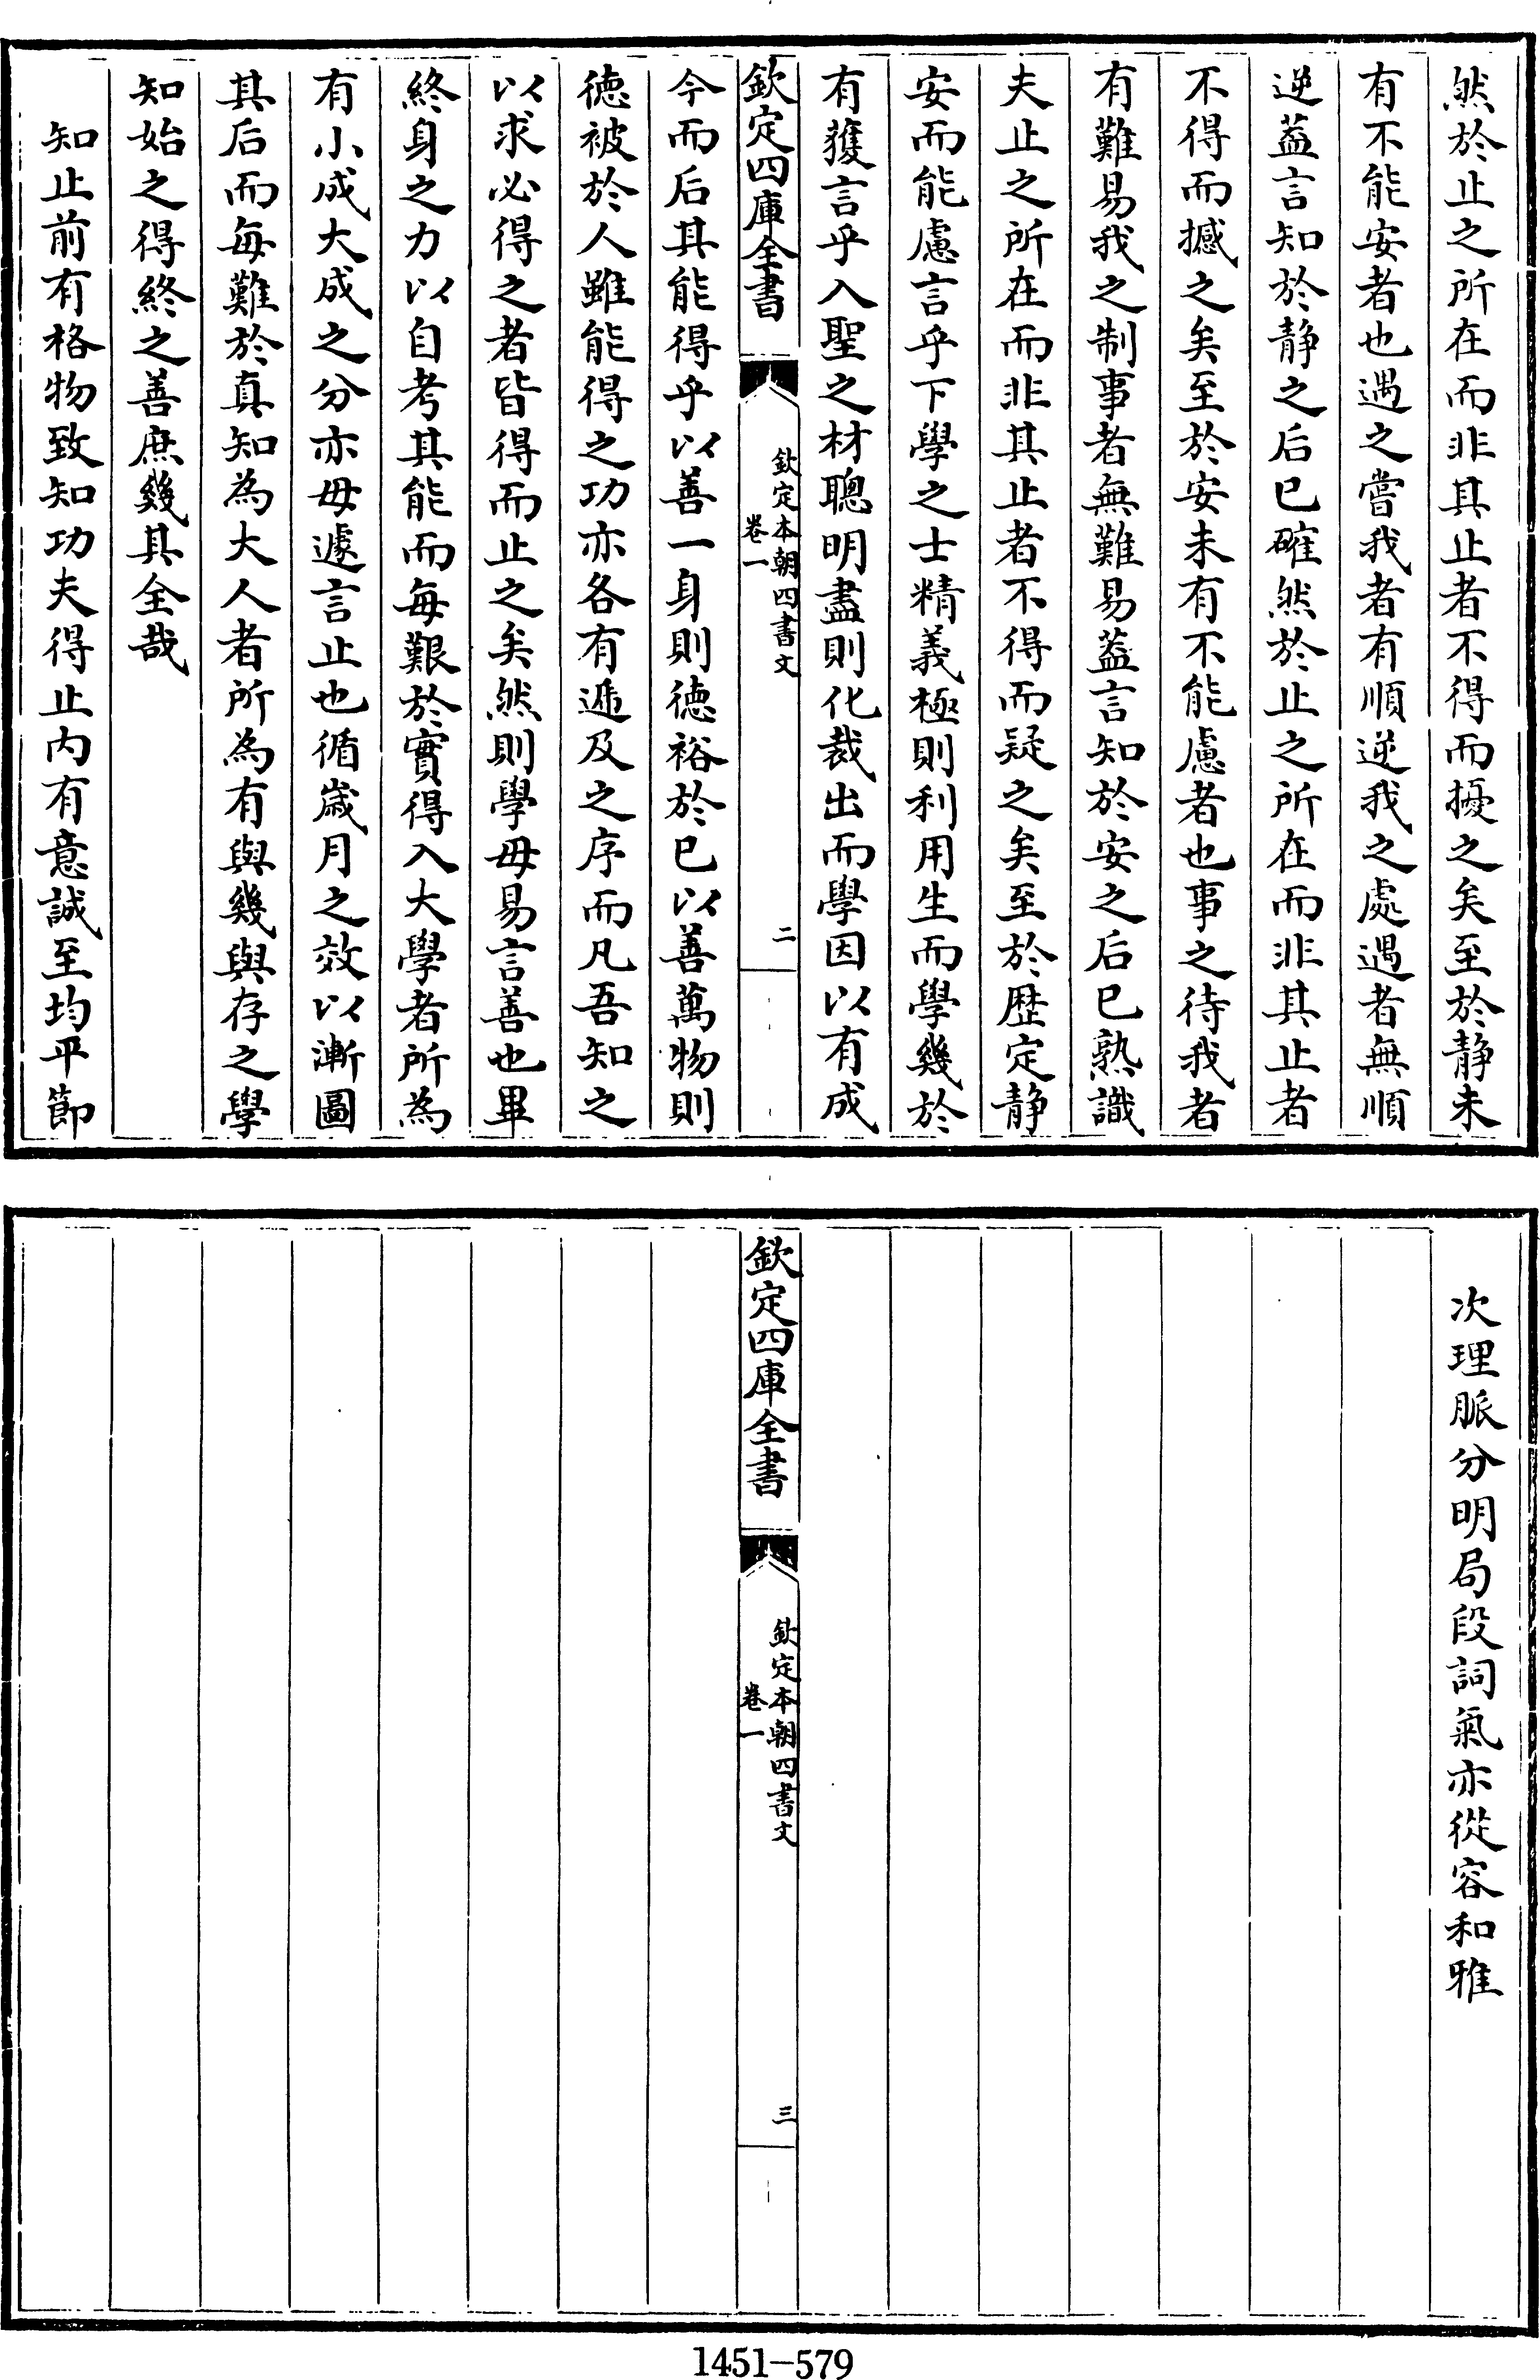 然於止之所在而非其止者不得而擾之矣至於静未
有不能安者也遇之嘗我者有順逆我之處遇者無順
逆葢言知於静之后已確然於止之所在而非其止者
不得而撼之矣至於安未有不能慮者也事之待我者
有難易我之制事者無難易葢言知於安之后已熟識
夫止之所在而非其止者不得而疑之矣至於歴定静
安而能慮言乎下學之士精義極則利用生而學幾於
有獲言乎入聖之材聰明盡則化裁出而學因以有成
欽定四庫全書
欽定本朝四書文
卷一
二
今而后其能得乎以善一身則徳裕於已以善萬物則
徳被於人雖能得之功亦各有逓及之序而凡吾知之
以求必得之者皆得而止之矣然則學毋易言善也畢
終身之力以自考其能而每艱於實得入大學者所為
有小成大成之分亦毋遽言止也循嵗月之效以漸圖
其后而每難於真知為大人者所為有與幾與存之學
知始之得終之善庶幾其全哉
知止前有格物致知功夫得止内有意誠至均平節
次理脈分明局段詞氣亦從容和雅
欽定四庫全書
欽定本朝四書文
卷一
三
1451-579